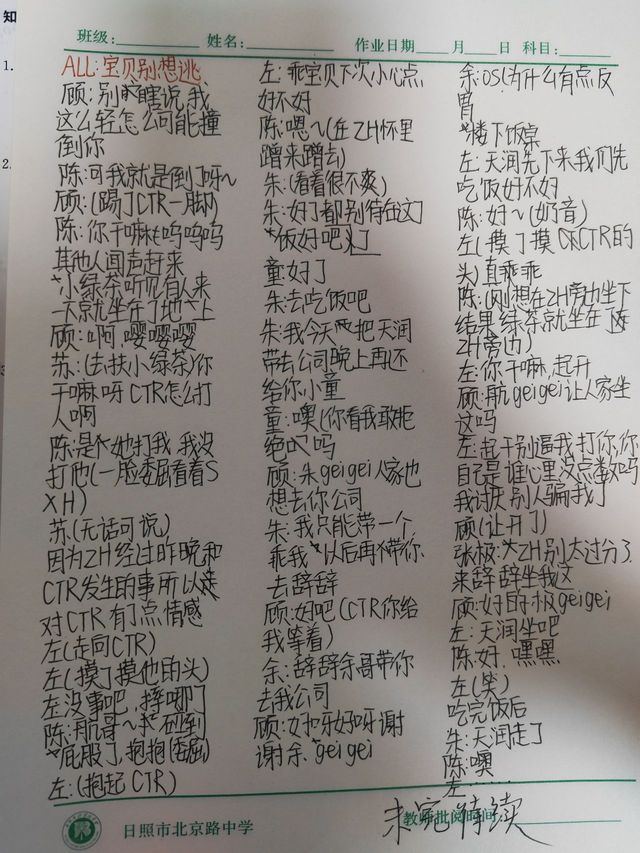 知
1.
2.
班级: 姓名: 作业日期 月 日 科目:
ALL:宝贝别想逃
顾:别瞎说我
这么轻怎么可能撞
倒你
陈:可我就是倒了呀~
顾:(踢了CTR一脚)
陈:你干嘛呜呜呜
其他人闻声赶来
小绿茶听见有人来
一下就坐在了地上
顾:啊,嘤嘤嘤
苏:(去扶小绿茶)你
干嘛呀CTR怎么打
人啊
陈:是她打我我没
打他(一脸委屈看着S
XH)
苏(无话可说)
因为ZH经过昨晚和
CTR发生的事所以
对CTR有了点情感
左(走向CTR)
左(摸了摸他的头)
左没事吧,摔哪了
陈:航哥~碰到
屁股了,抱抱(委屈)
左:(抱起CTR)
左:乖宝贝下次小心点
好不好
陈:嗯~(在ZH怀里
蹭来蹭去)
朱:(看着很不爽)
朱:好了都别待在这了
饭好吧
童:好了
朱:去吃饭吧
朱:我今天把天润
带去公司晚上再还
给你,小童
童:噢(你看我敢拒
绝吗
顾:朱geigei人家也
想去你公司
朱:我只能带一个
乖我以后再带你
去辞辞
顾:好吧(CTR你给
我等着)
余:辞辞余哥带你
去我公司
顾:好呀好呀谢
谢余.geigei
余:OS(为什么有点反
胃
楼下饭桌
左:天润先下来我们先
吃饭好不好
陈:好~(奶音)
左(摸了摸CTR的
头)真乖乖
陈(刚想在ZH旁边坐下
结果绿茶就坐在了
ZH旁边)
左:你干嘛,起开
顾:航geigei让人家坐
这吗
左:起开别逼我打你,你
自己是谁心里没点数吗
我讨厌别人骗我了
顾(让开了)
张极:ZH别太过分了
来辞辞坐我这
顾:好的极geigei
左:天润坐吧
陈:好.嘿嘿.
左(笑)
吃完饭后
朱:天润走了
陈:噢
左......
未完待续
日照市北京路中学 教师批阅时间: